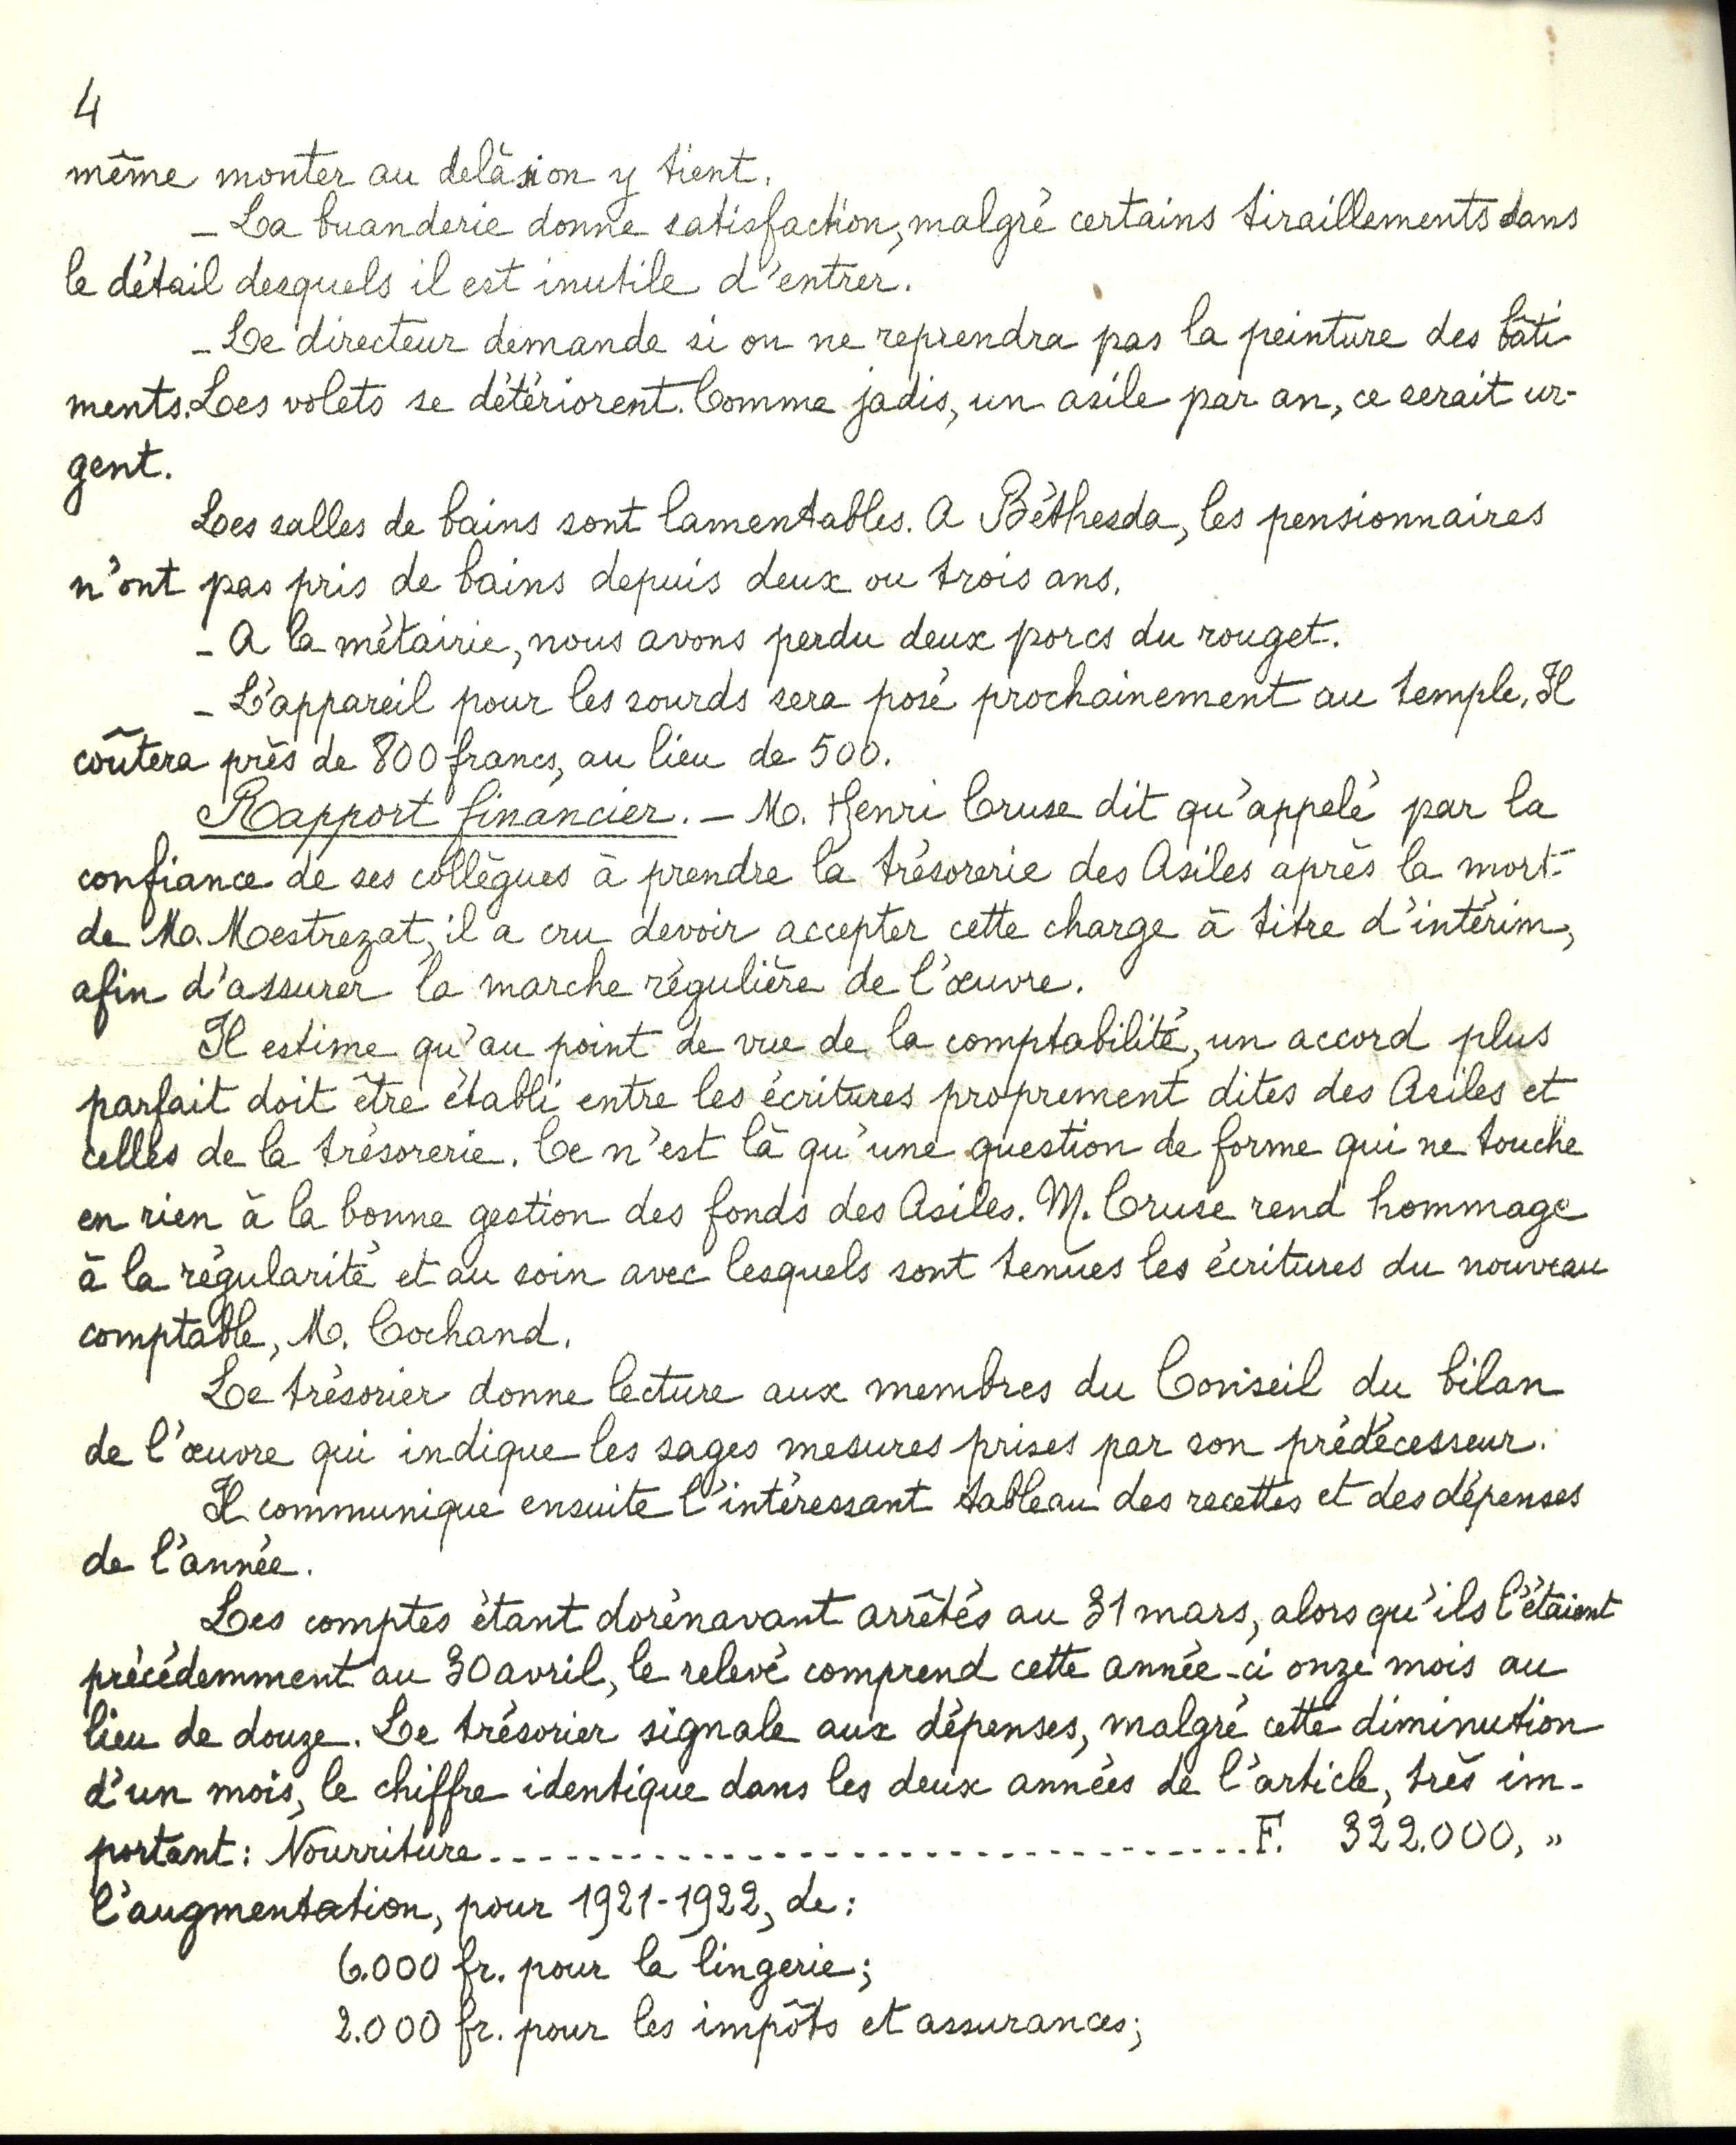 4
même monter au delà si on y tient.
– La buanderie donne satisfaction, malgré certains tiraillements dans
le détail desquels il est inutile d'entrer.
– Le directeur demande si on ne reprendra pas la peinture des bâti-
ments. Les volets se détériorent. Comme jadis, un asile par an, ce serait ur-
gent.
Les salles de bains sont lamentables. A Béthesda, les pensionnaires
n'ont pas pris de bains depuis deux ou trois ans.
– A la métairie, nous avons perdu deux porcs du rouget.
– L'appareil pour les sourds sera posé prochainement au temple. Il
coûtera près de 800 francs, au lieu de 500.
Rapport financier. – M. Henri Cruse dit qu'appelé par la
confiance de ses collègues à prendre la trésorerie des Asiles après la mort
de M. Mestrezat, il a cru devoir accepter cette charge à titre d'intérim,
afin d'assurer la marche régulière de l'œuvre.
Il estime qu'au point de vue de la comptabilité, un accord plus
parfait doit être établi entre les écritures proprement dites des Asiles et
celles de la trésorerie. Ce n'est là qu'une question de forme qui ne touche
en rien à la bonne gestion des fonds des Asiles. M. Cruse rend hommage
à la régularité et au soin avec lesquels sont tenues les écritures du nouveau
comptable, M. Cochand.
Le trésorier donne lecture aux membres du Conseil du bilan
de l'œuvre qui indique les sages mesures prises par son prédécesseur.
Il communique ensuite l'intéressant tableau des recettes et des dépenses
de l'année.
Les comptes étant dorénavant arrêtés au 31 mars, alors qu'ils l'étaient
précédemment au 30 avril, le relevé comprend cette année-ci onze mois au
lieu de douze. Le trésorier signale aux dépenses, malgré cette diminution
d'un mois, le chiffre identique dans les deux années de l'article, très im-
portant: Nourriture..............................F. 322.000, "
l'augmentation, pour 1921-1922, de:
6.000 fr. pour la lingerie;
2.000 fr. pour les impôts et assurances;